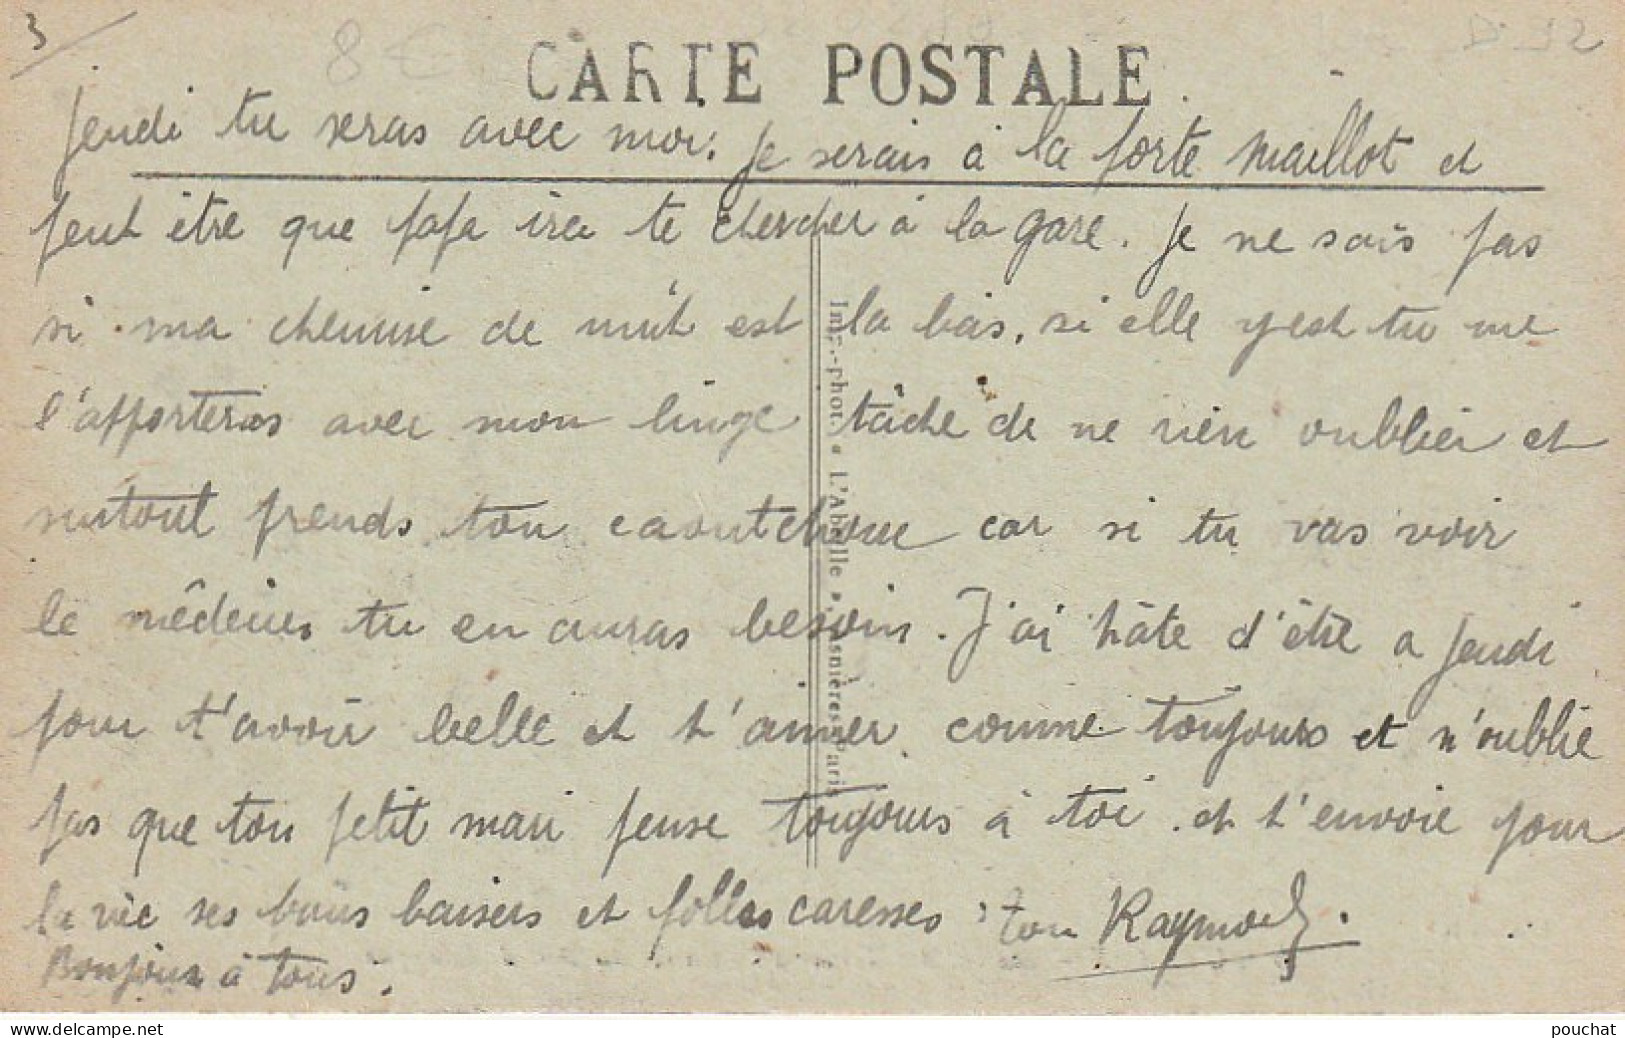 3
8€
D 32
CARTE POSTALE
jeudi tu seras avec moi. je serais à la porte Maillot et
peut être que papa ira te chercher à la gare. je ne sais pas
si ma chemise de nuit est la bas, si elle y est tu me
l'apporteras avec mon linge tâche de ne rien oublier et
surtout prends ton caoutchouc car si tu vas voir
le médecin tu en auras besoin. J'ai hâte d'être a jeudi
pour t'avoir belle et t'aimer comme toujours et n'oublie
pas que ton petit mari pense toujours à toi et t'envoie pour
la vie ses bons baisers et folles caresses ton Raymond.
Bonjour à tous.
Imp.-phot. « L'Abeille », Asnières-Paris
delcampe.net
pouchat